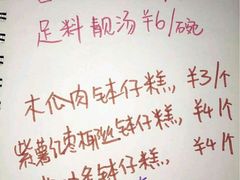 足料靓汤 ¥6/碗
木瓜肉钵仔糕,, ¥3/个
紫薯枣椰丝钵仔糕,, ¥4个
钵仔糕,, ¥4/个